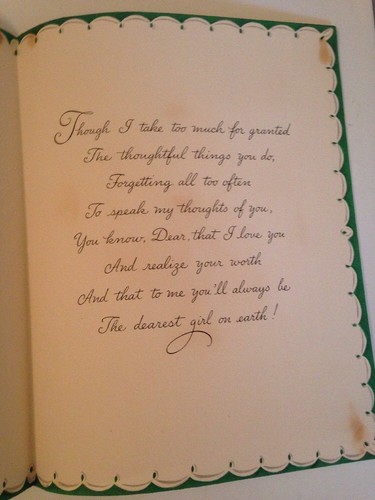 Though I take too much for granted
The thoughtful things you do,
Forgetting all too often
To speak my thoughts of you,
You know, Dear, that I love you
And realize your worth
And that to me you'll always be
The dearest girl on earth!